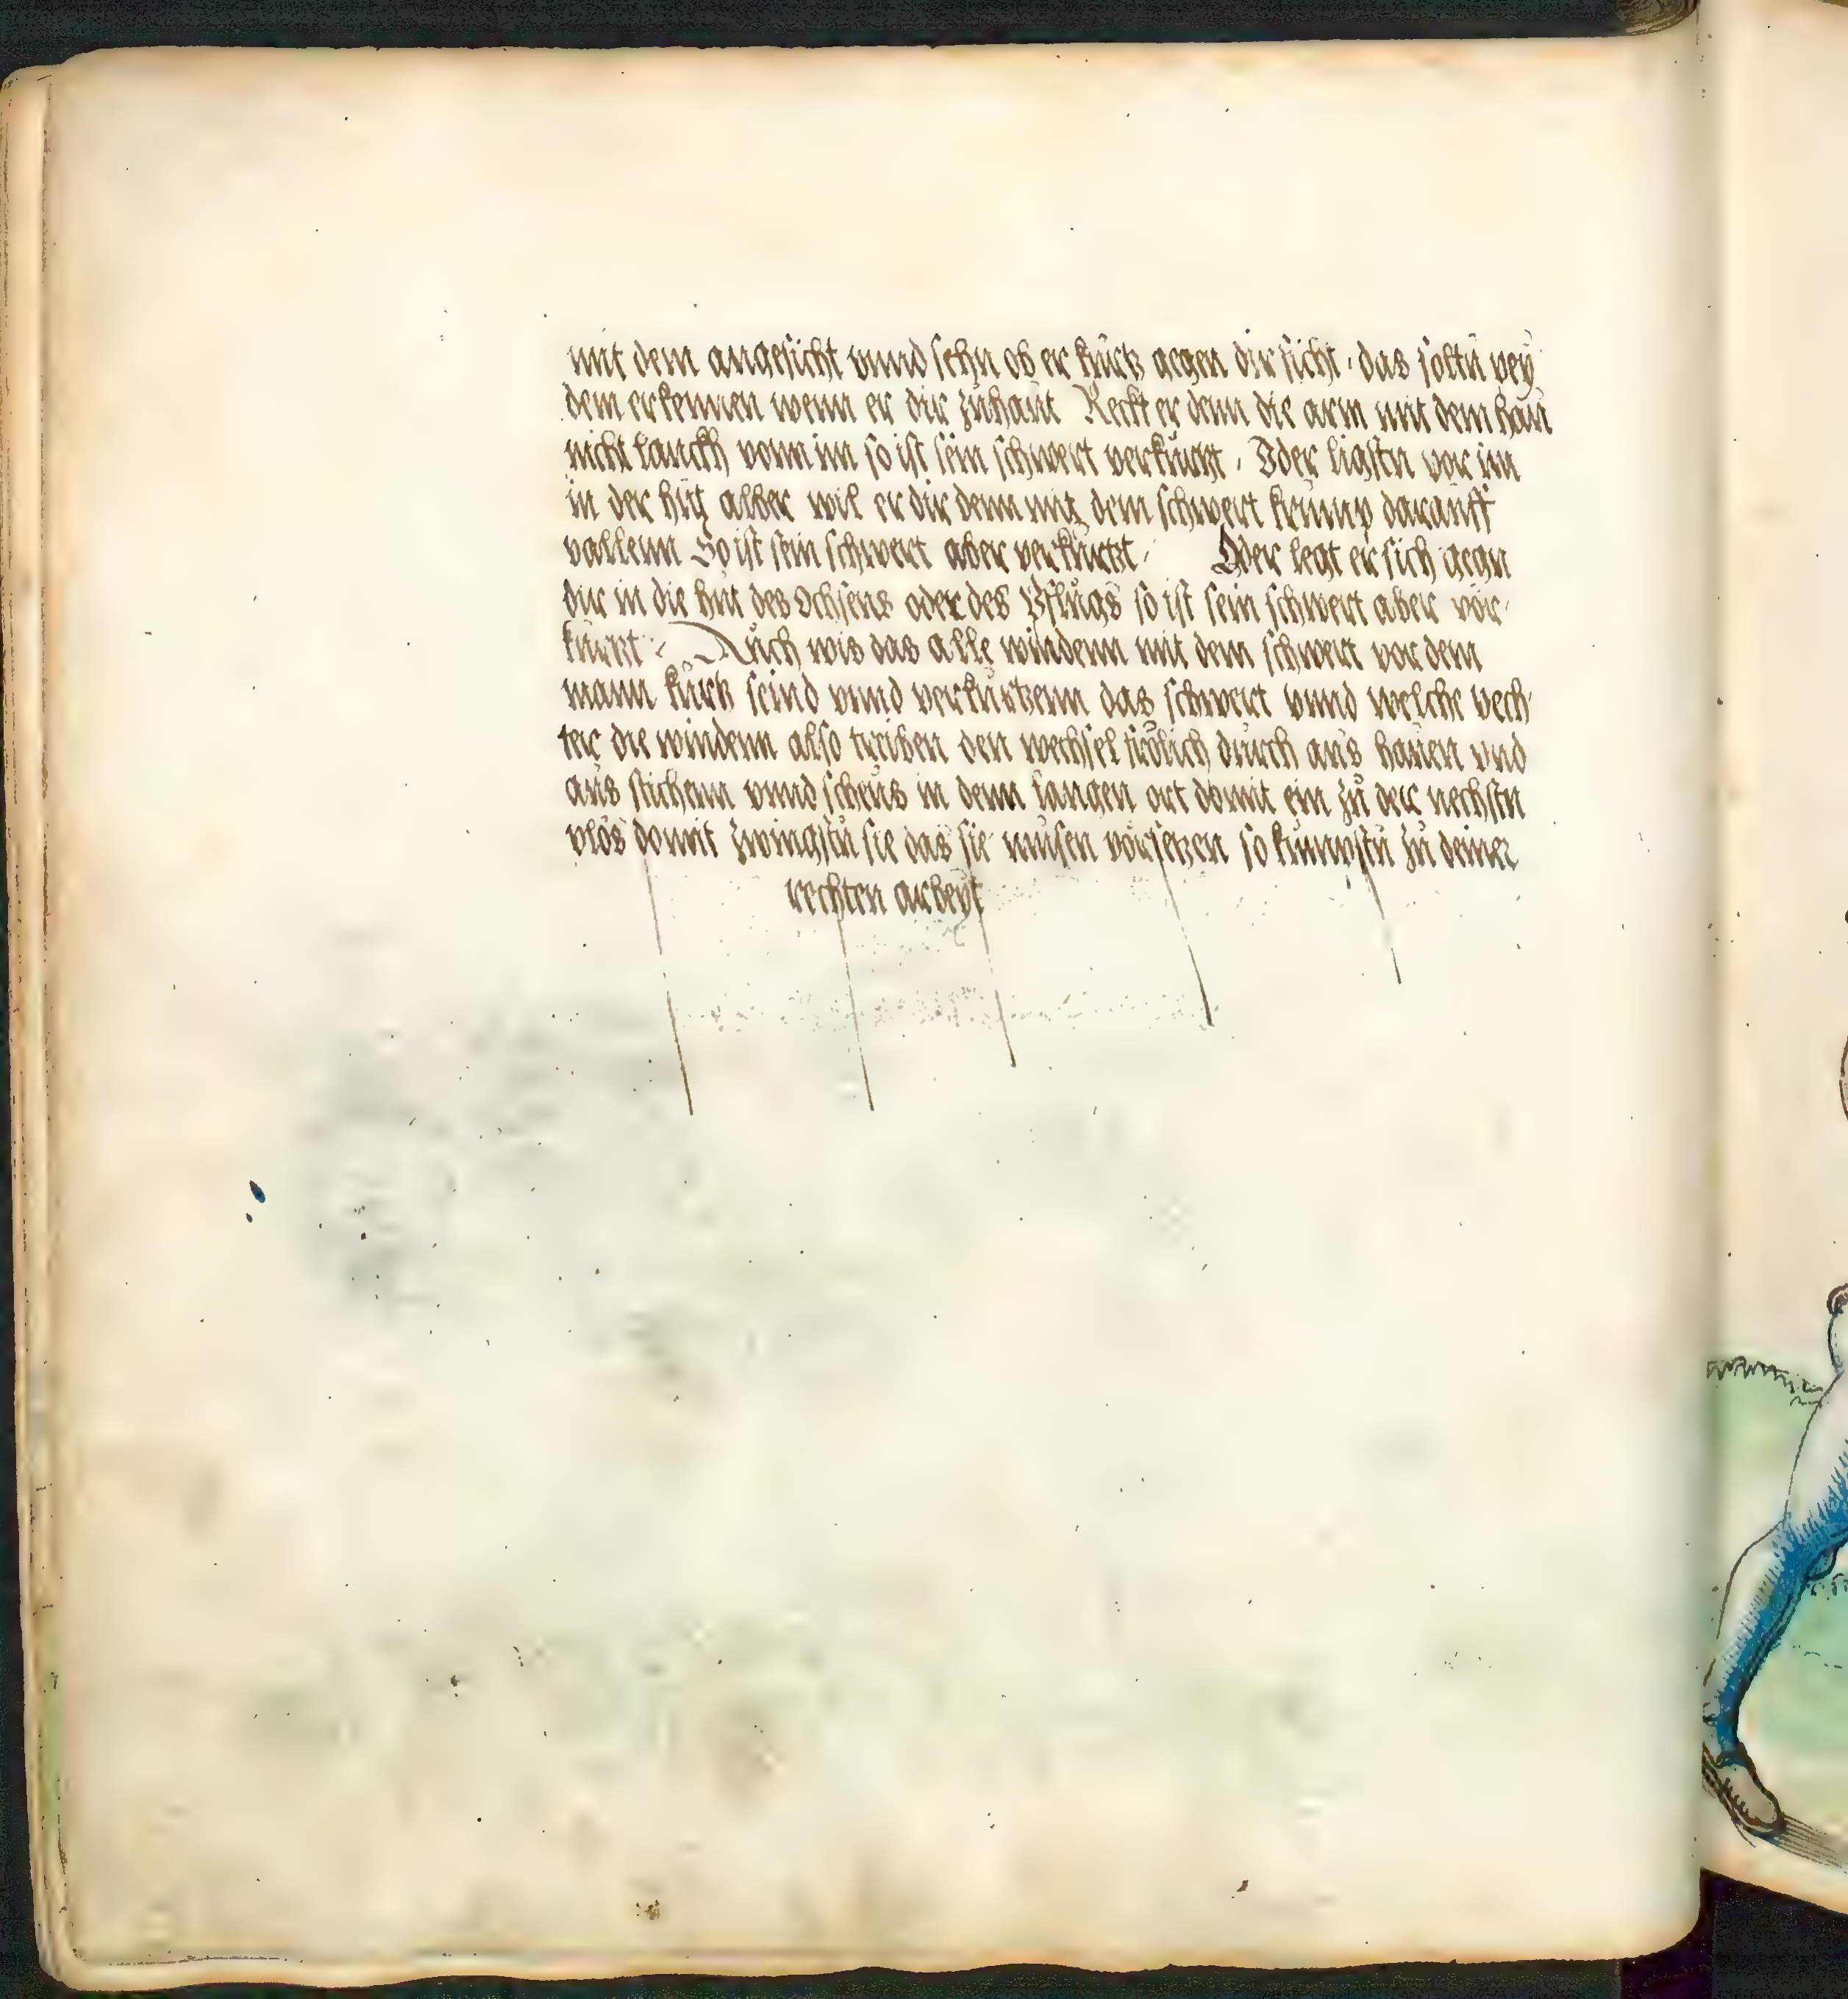 mit dem angesicht vnnd sehn ob er kürtz gegen dir ficht · das soltü pey
dem erkennen wenn er dir zühaüt Reckt er denn die arm mit dem haü
nicht lanckh vonn im so ist sein schwert verkürtzt · Oder ligstu vor im
in der hüt alber wil er dir denn mit dem schwert krümp daraüff
vallenn So ist sein schwert aber verkürtzt · Oder legt er sich gegn
dir in die hüt des Ochsens oder des Pflügs so ist sein schwert aber vor-
kürtzt · Aüch wis das alle windenn mit dem schwert vor dem
mann kürtz seind vnnd verkürtzenn das schwert vnnd welche vech-
ter die windenn also treiben den wechsel frölich dürch aüs haüen vnd
aüs stichenn vnnd scheüs in denn langen ort domit ein zü der nechstn
plös domit zwingstü sie das sie müsen vorsetzen so kümpstü zü deiner
rechten arbeyt